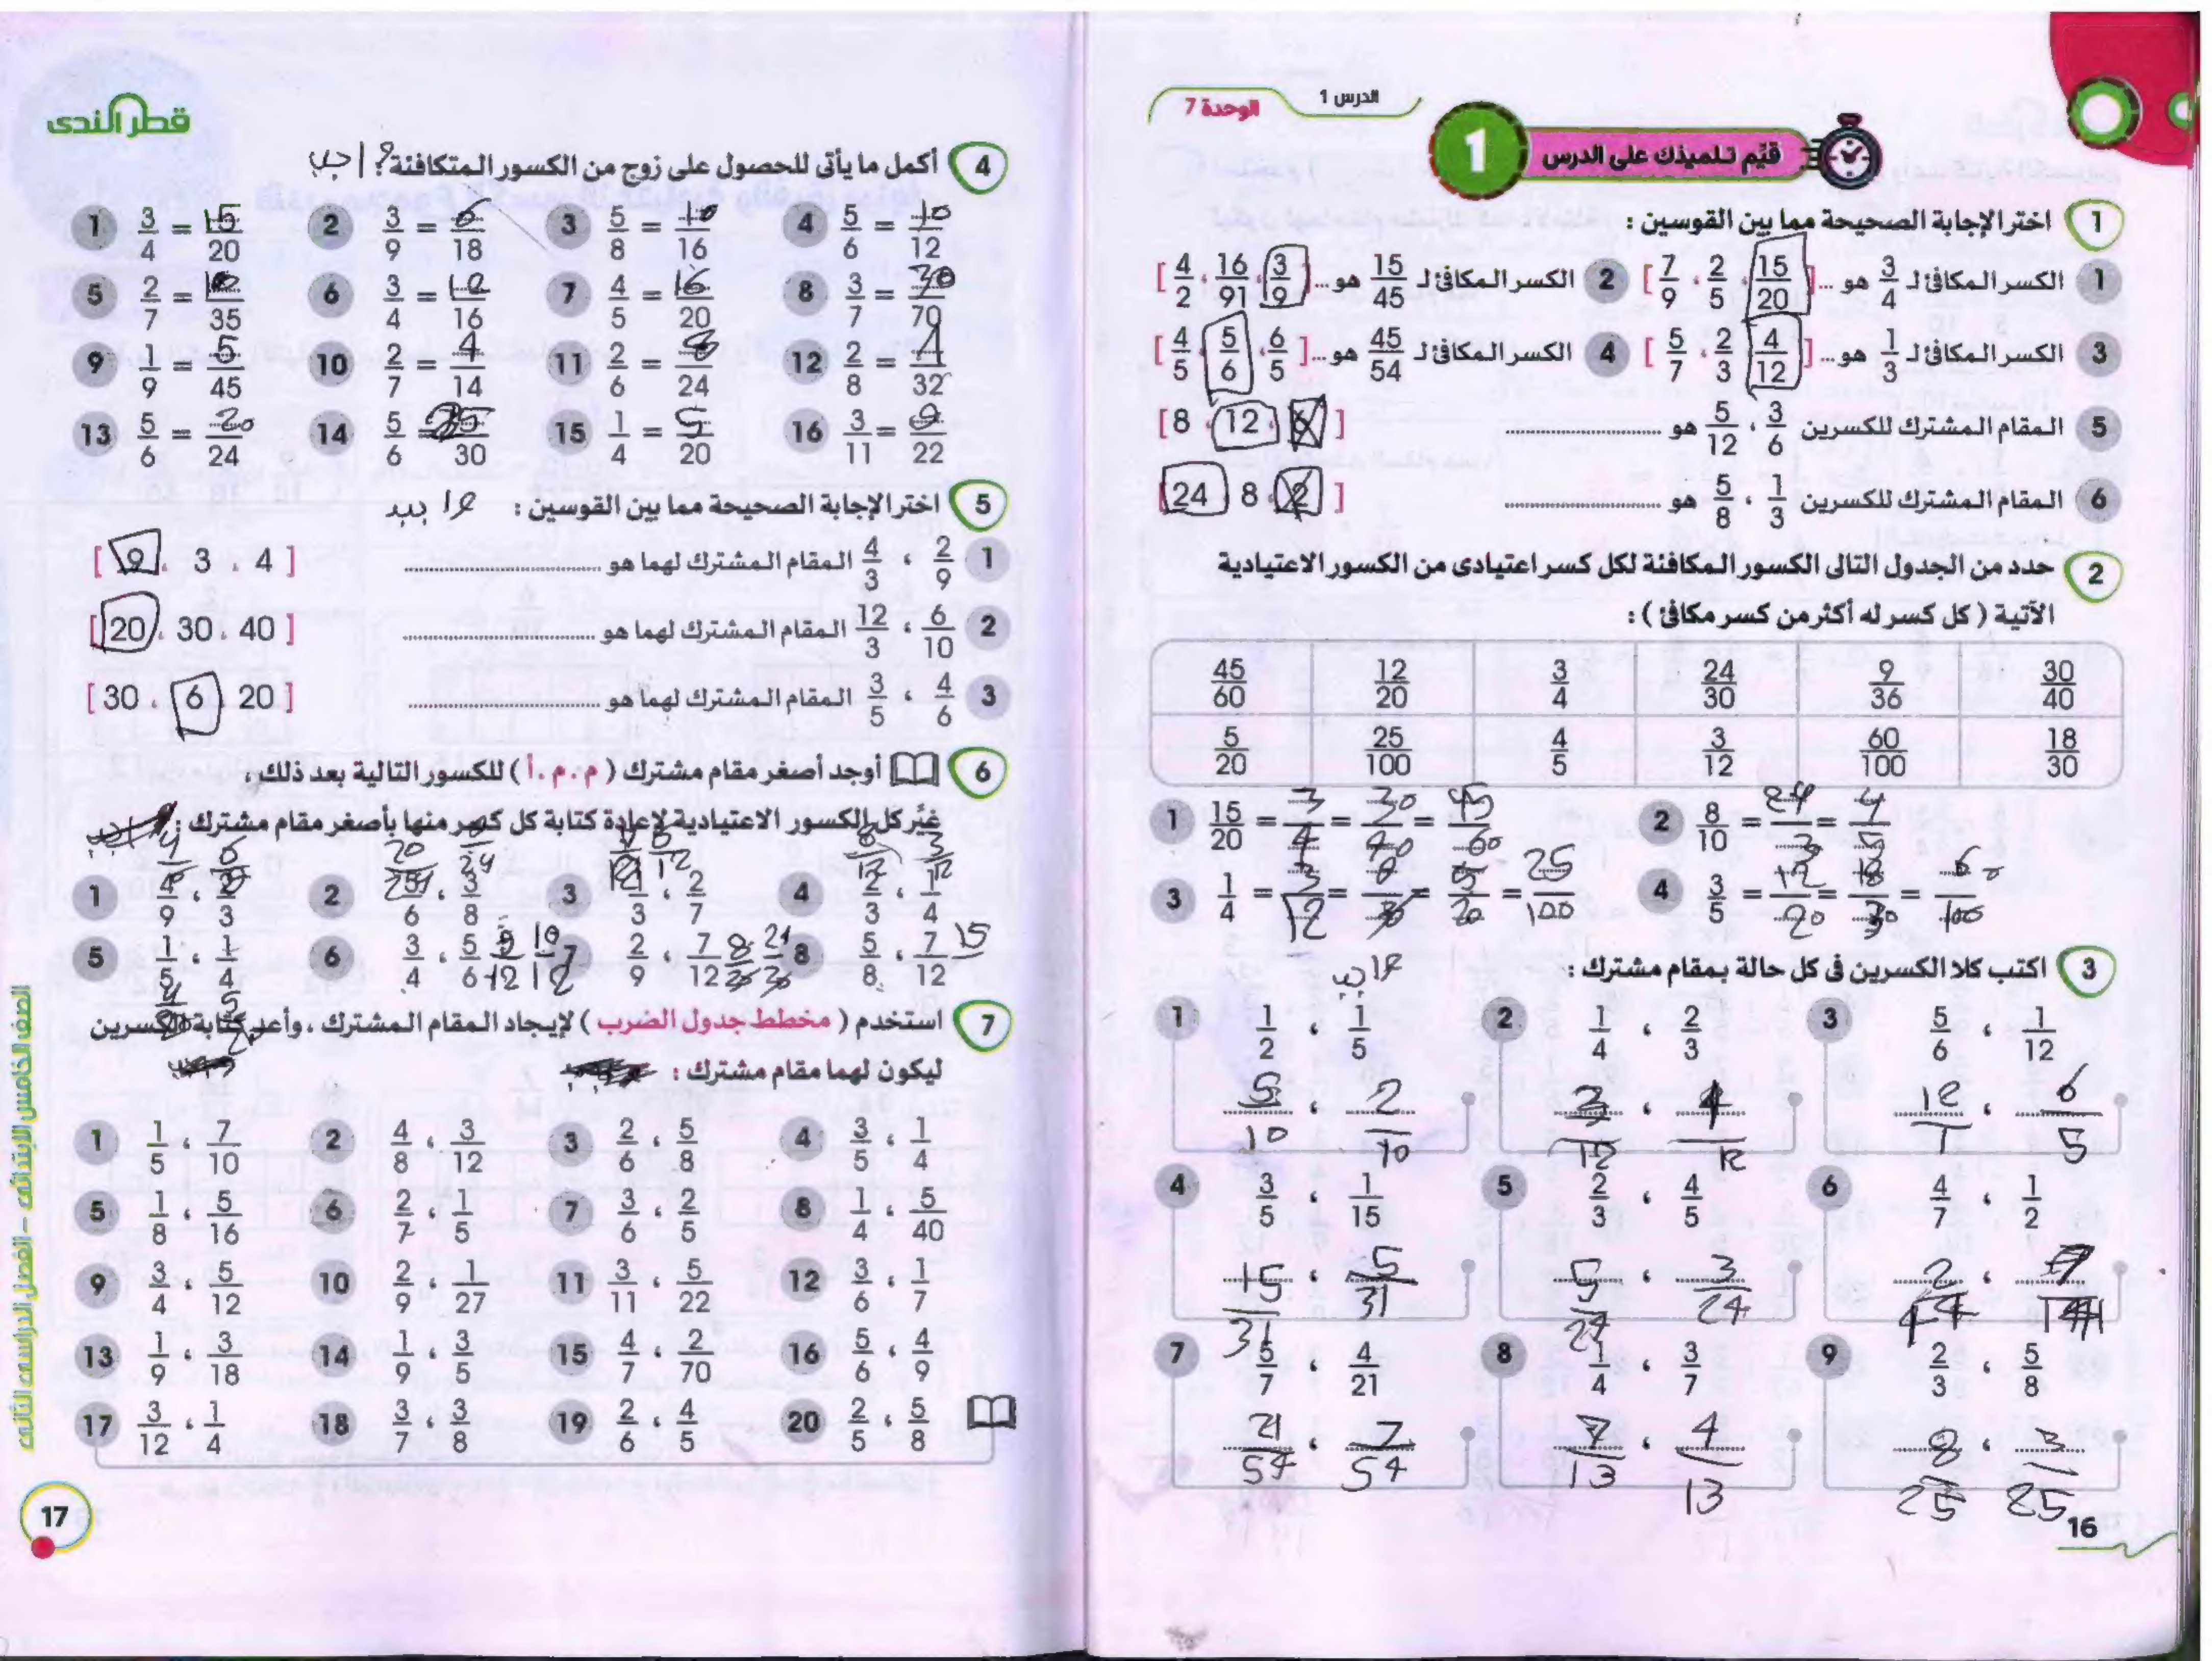 الدرس 1
الوحدة 7
1 قيِّم تلميذك على الدرس
1 اختر الإجابة الصحيحة مما بين القوسين :
1 الكسر المكافئ لـ 3/4 هو ... [ 15/20 ، 2/5 ، 7/9 ]
2 الكسر المكافئ لـ 15/45 هو ... [ 3/9 ، 16/91 ، 4/2 ]
3 الكسر المكافئ لـ 1/3 هو ... [ 4/12 ، 2/3 ، 5/7 ]
4 الكسر المكافئ لـ 45/54 هو ... [ 6/5 ، 5/6 ، 4/5 ]
5 المقام المشترك للكسرين 3/6 ، 5/12 هو ........ [ 6 ، 12 ، 8 ]
6 المقام المشترك للكسرين 1/3 ، 5/8 هو ........ [ 2 ، 8 ، 24 ]
2 حدد من الجدول التالى الكسور المكافئة لكل كسر اعتيادى من الكسور الاعتيادية
الآتية ( كل كسر له أكثر من كسر مكافئ ) :
45/60 12/20 3/4 24/30 9/36 30/40
5/20 25/100 4/5 3/12 60/100 18/30
1 15/20 = 3/4 = 30/40 = 45/60
2 8/10 = 24/3 = 4/5
3 1/4 = 3/12 = 9/36 = 5/20 = 25/100
4 3/5 = 12/20 = 18/30 = 60/100
3 اكتب كلا الكسرين فى كل حالة بمقام مشترك :
1 1/2 ، 1/5 2 1/4 ، 2/3 3 5/6 ، 1/12
5/10 ، 2/10 3/12 ، 4/12 12/1 ، 6/5
4 3/5 ، 1/15 5 2/3 ، 4/5 6 4/7 ، 1/2
15/31 ، 5/31 5/24 ، 3/24
7 5/7 ، 4/21 8 1/4 ، 3/7 9 2/3 ، 5/8
21/54 ، 7/54 7/13 ، 4/13 8/25 ، 3/25
16
قطر الندى
4 أكمل ما يأتى للحصول على زوج من الكسور المتكافئة ؟ اجب
1 3/4 = 15/20 2 3/9 = 6/18 3 5/8 = 10/16 4 5/6 = 10/12
5 2/7 = 10/35 6 3/4 = 12/16 7 4/5 = 16/20 8 3/7 = 30/70
9 1/9 = 5/45 10 2/7 = 4/14 11 2/6 = 8/24 12 2/8 = 1/32
13 5/6 = 20/24 14 5/6 = 25/30 15 1/4 = 5/20 16 3/11 = 9/22
5 اختر الإجابة الصحيحة مما بين القوسين :
1 2/9 ، 4/3 المقام المشترك لهما هو ........ [ 9 ، 3 ، 4 ]
2 6/10 ، 12/3 المقام المشترك لهما هو ........ [ 20 ، 30 ، 40 ]
3 4/6 ، 3/5 المقام المشترك لهما هو ........ [ 30 ، 6 ، 20 ]
6 أوجد أصغر مقام مشترك ( م . م . أ ) للكسور التالية بعد ذلك ،
غيِّر كل الكسور الاعتيادية لإعادة كتابة كل كسر منها بأصغر مقام مشترك :
8/12 3/12
1 4/9 ، 2/3 2 5/6 ، 3/8 3 1/3 ، 2/7 4 2/3 ، 1/4
5 1/5 ، 1/4 6 3/4 ، 5/6 9/12 10/12 7 2/9 ، 7/12 8 5/8 ، 7/12 15
7 استخدم ( مخطط جدول الضرب ) لإيجاد المقام المشترك ، وأعد كتابة الكسرين
ليكون لهما مقام مشترك :
1 1/5 ، 7/10 2 4/8 ، 3/12 3 2/6 ، 5/8 4 3/5 ، 1/4
5 1/8 ، 5/16 6 2/7 ، 1/5 7 3/6 ، 2/5 8 1/4 ، 5/40
9 3/4 ، 5/12 10 2/9 ، 1/27 11 3/11 ، 5/22 12 3/6 ، 1/7
13 1/9 ، 3/18 14 1/9 ، 3/5 15 4/7 ، 2/70 16 5/6 ، 4/9
17 3/12 ، 1/4 18 3/7 ، 3/8 19 2/6 ، 4/5 20 2/5 ، 5/8
الصف الخامس الابتدائى - الفصل الدراسى الثانى
17